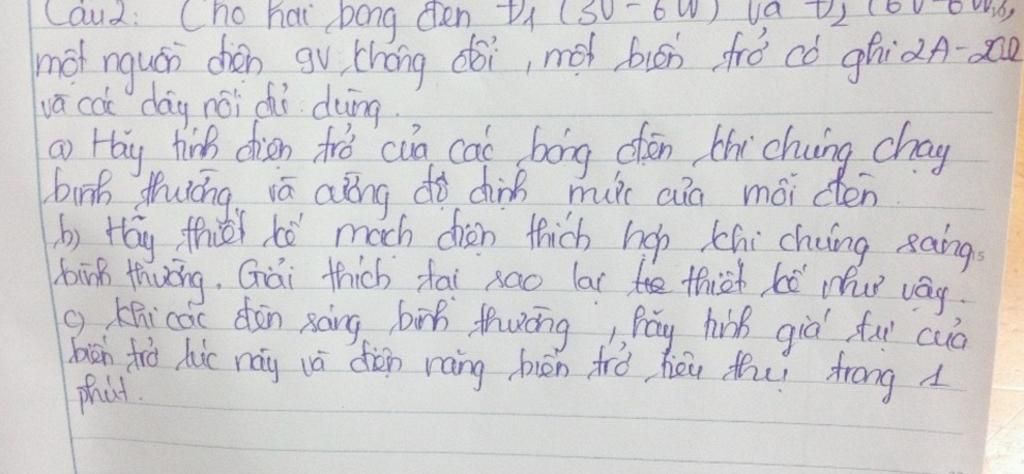 Câu 2: Cho hai bóng đèn Đ1 (3V - 6W) và Đ2 (6V -
một nguồn điện 9V không đổi, một biến trở có ghi 2A - 20Ω
và các dây nối đủ dùng.
a) Hãy tính điện trở của các bóng đèn khi chúng chạy
bình thường và cường độ định mức của mỗi đèn.
b) Hãy thiết kế mạch điện thích hợp khi chúng sáng
bình thường. Giải thích tại sao lại thiết kế như vậy.
c) Khi các đèn sáng bình thường, hãy tính giá trị của
biến trở lúc này và điện năng biến trở tiêu thụ trong 1
phút.